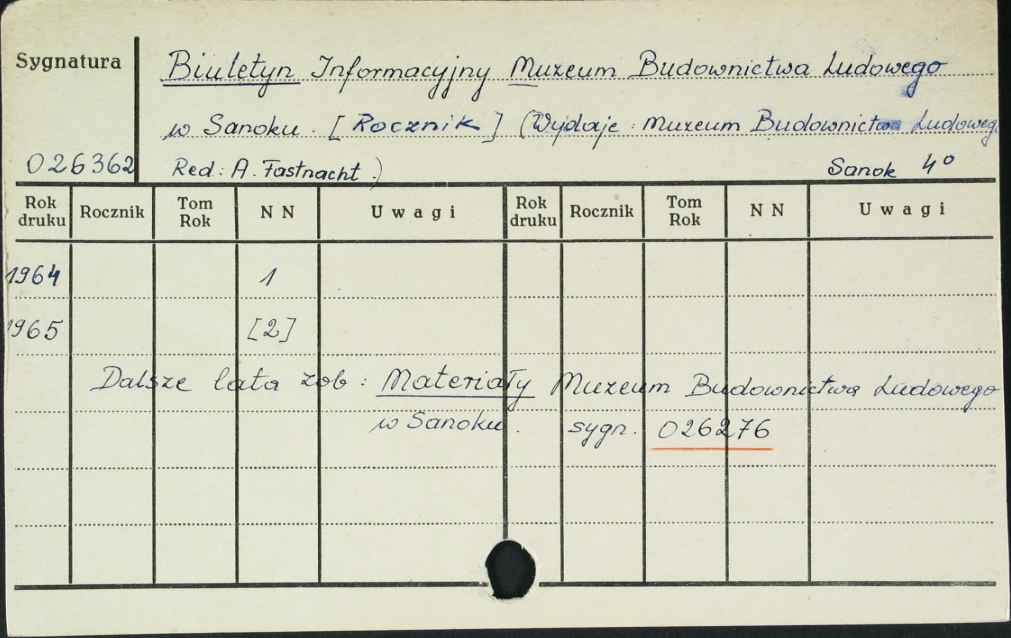 Sygnatura
Biuletyn Informacyjny Muzeum Budownictwa Ludowego
w Sanoku. [Rocznik] (Wydaje: Muzeum Budownictwa Ludoweg
026362 Red: A. Fastnacht.) Sanok 4°
Rok druku Rocznik Tom Rok NN Uwagi Rok druku Rocznik Tom Rok NN Uwagi
1964 1
1965 [2]
Dalsze lata zob: Materiały Muzeum Budownictwa Ludowego
w Sanoku. sygn. 026276